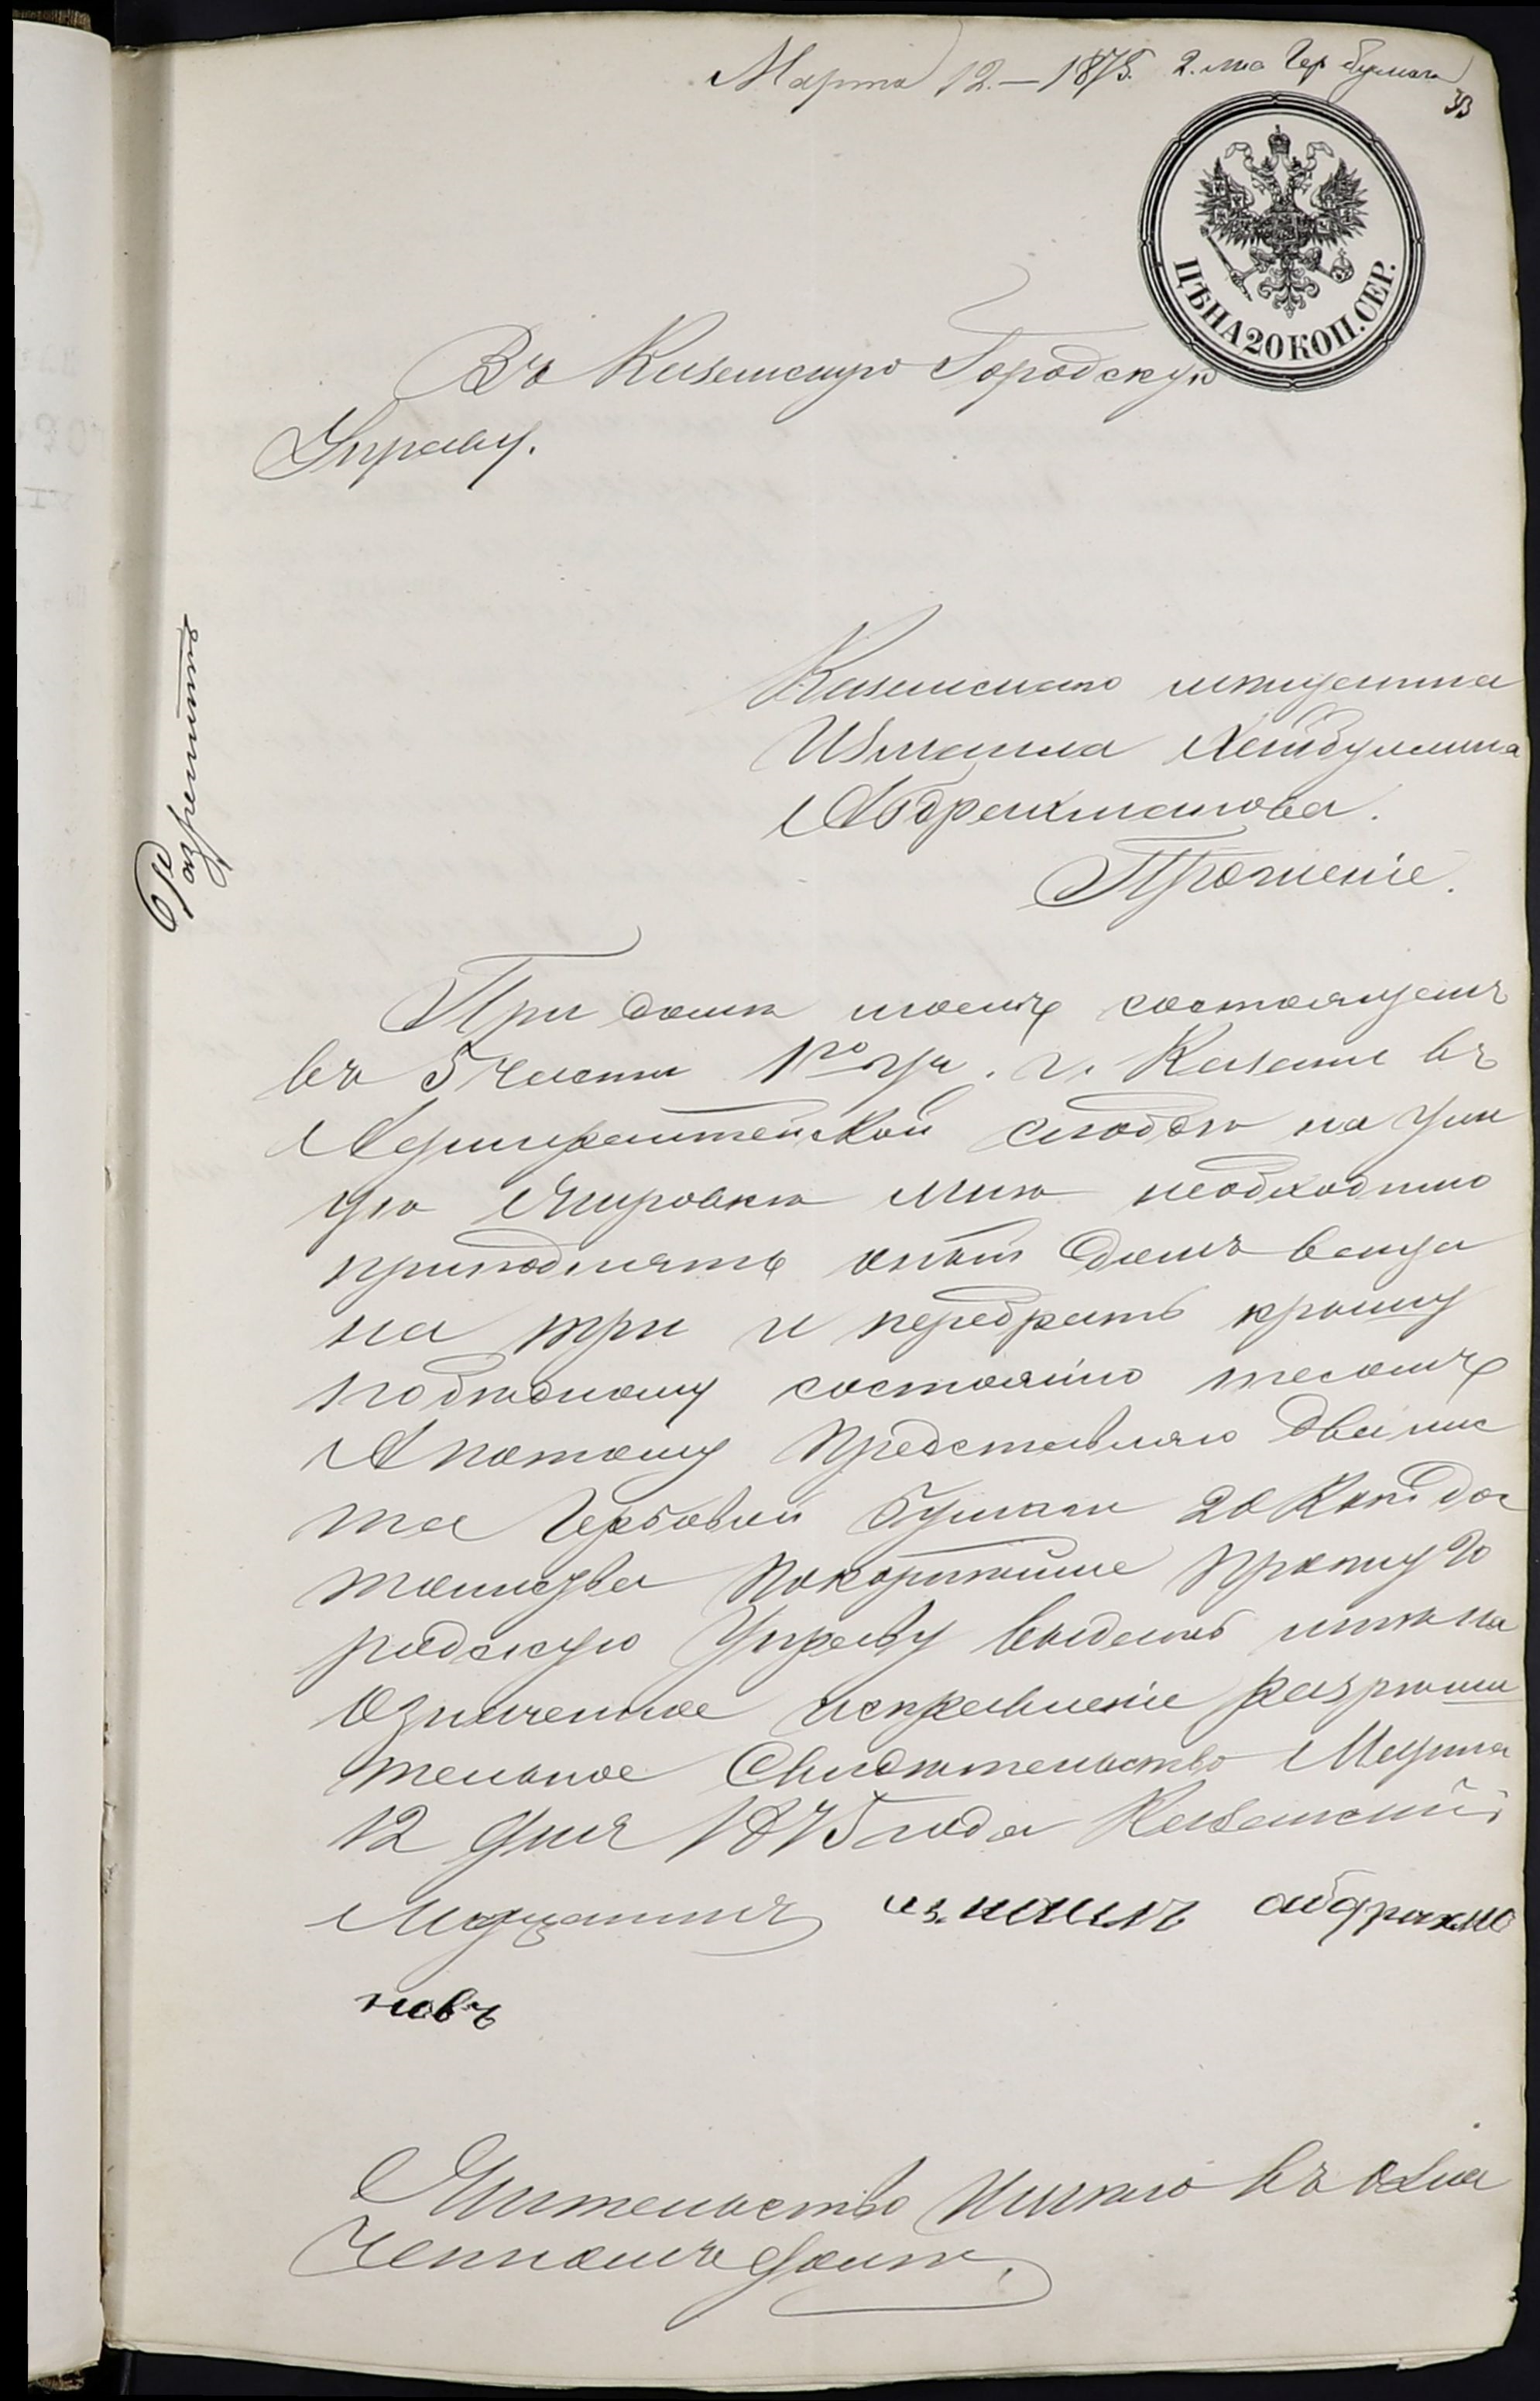 Марта 12.–1875. 2. лис Гер бумаги
33
ЦѢНА 20 КОП. СЕР.
Въ Казанскую Городскую
Управу.
Казанскаго мѣщанина
Измаила Хейбуллина
Абдрахманова.
Прошеніе.
Разрешить
При домѣ моемъ состоящемъ
въ 5 части 1го уч. г. Казани въ
Адмиралтейской слободѣ на ули
цѣ Ямровкѣ мнѣ необходимо
приподнять оный домъ венца
на три и перебрать крышу
по бѣдному состоянію тесомъ
А потому представляю два лис
та Гербовой бумаги 20 Коп. до
стоинства покорнѣйше прошу Го
родскую Управу выдать мнѣ на
означенное исправленіе разрѣши
тельное Свидѣтельство Марта
12 дня 1875 года Казанскій
Мещанинъ измаилъ абдрахма
новъ
Жительство Имѣю въ озна
ченномъ домѣ.